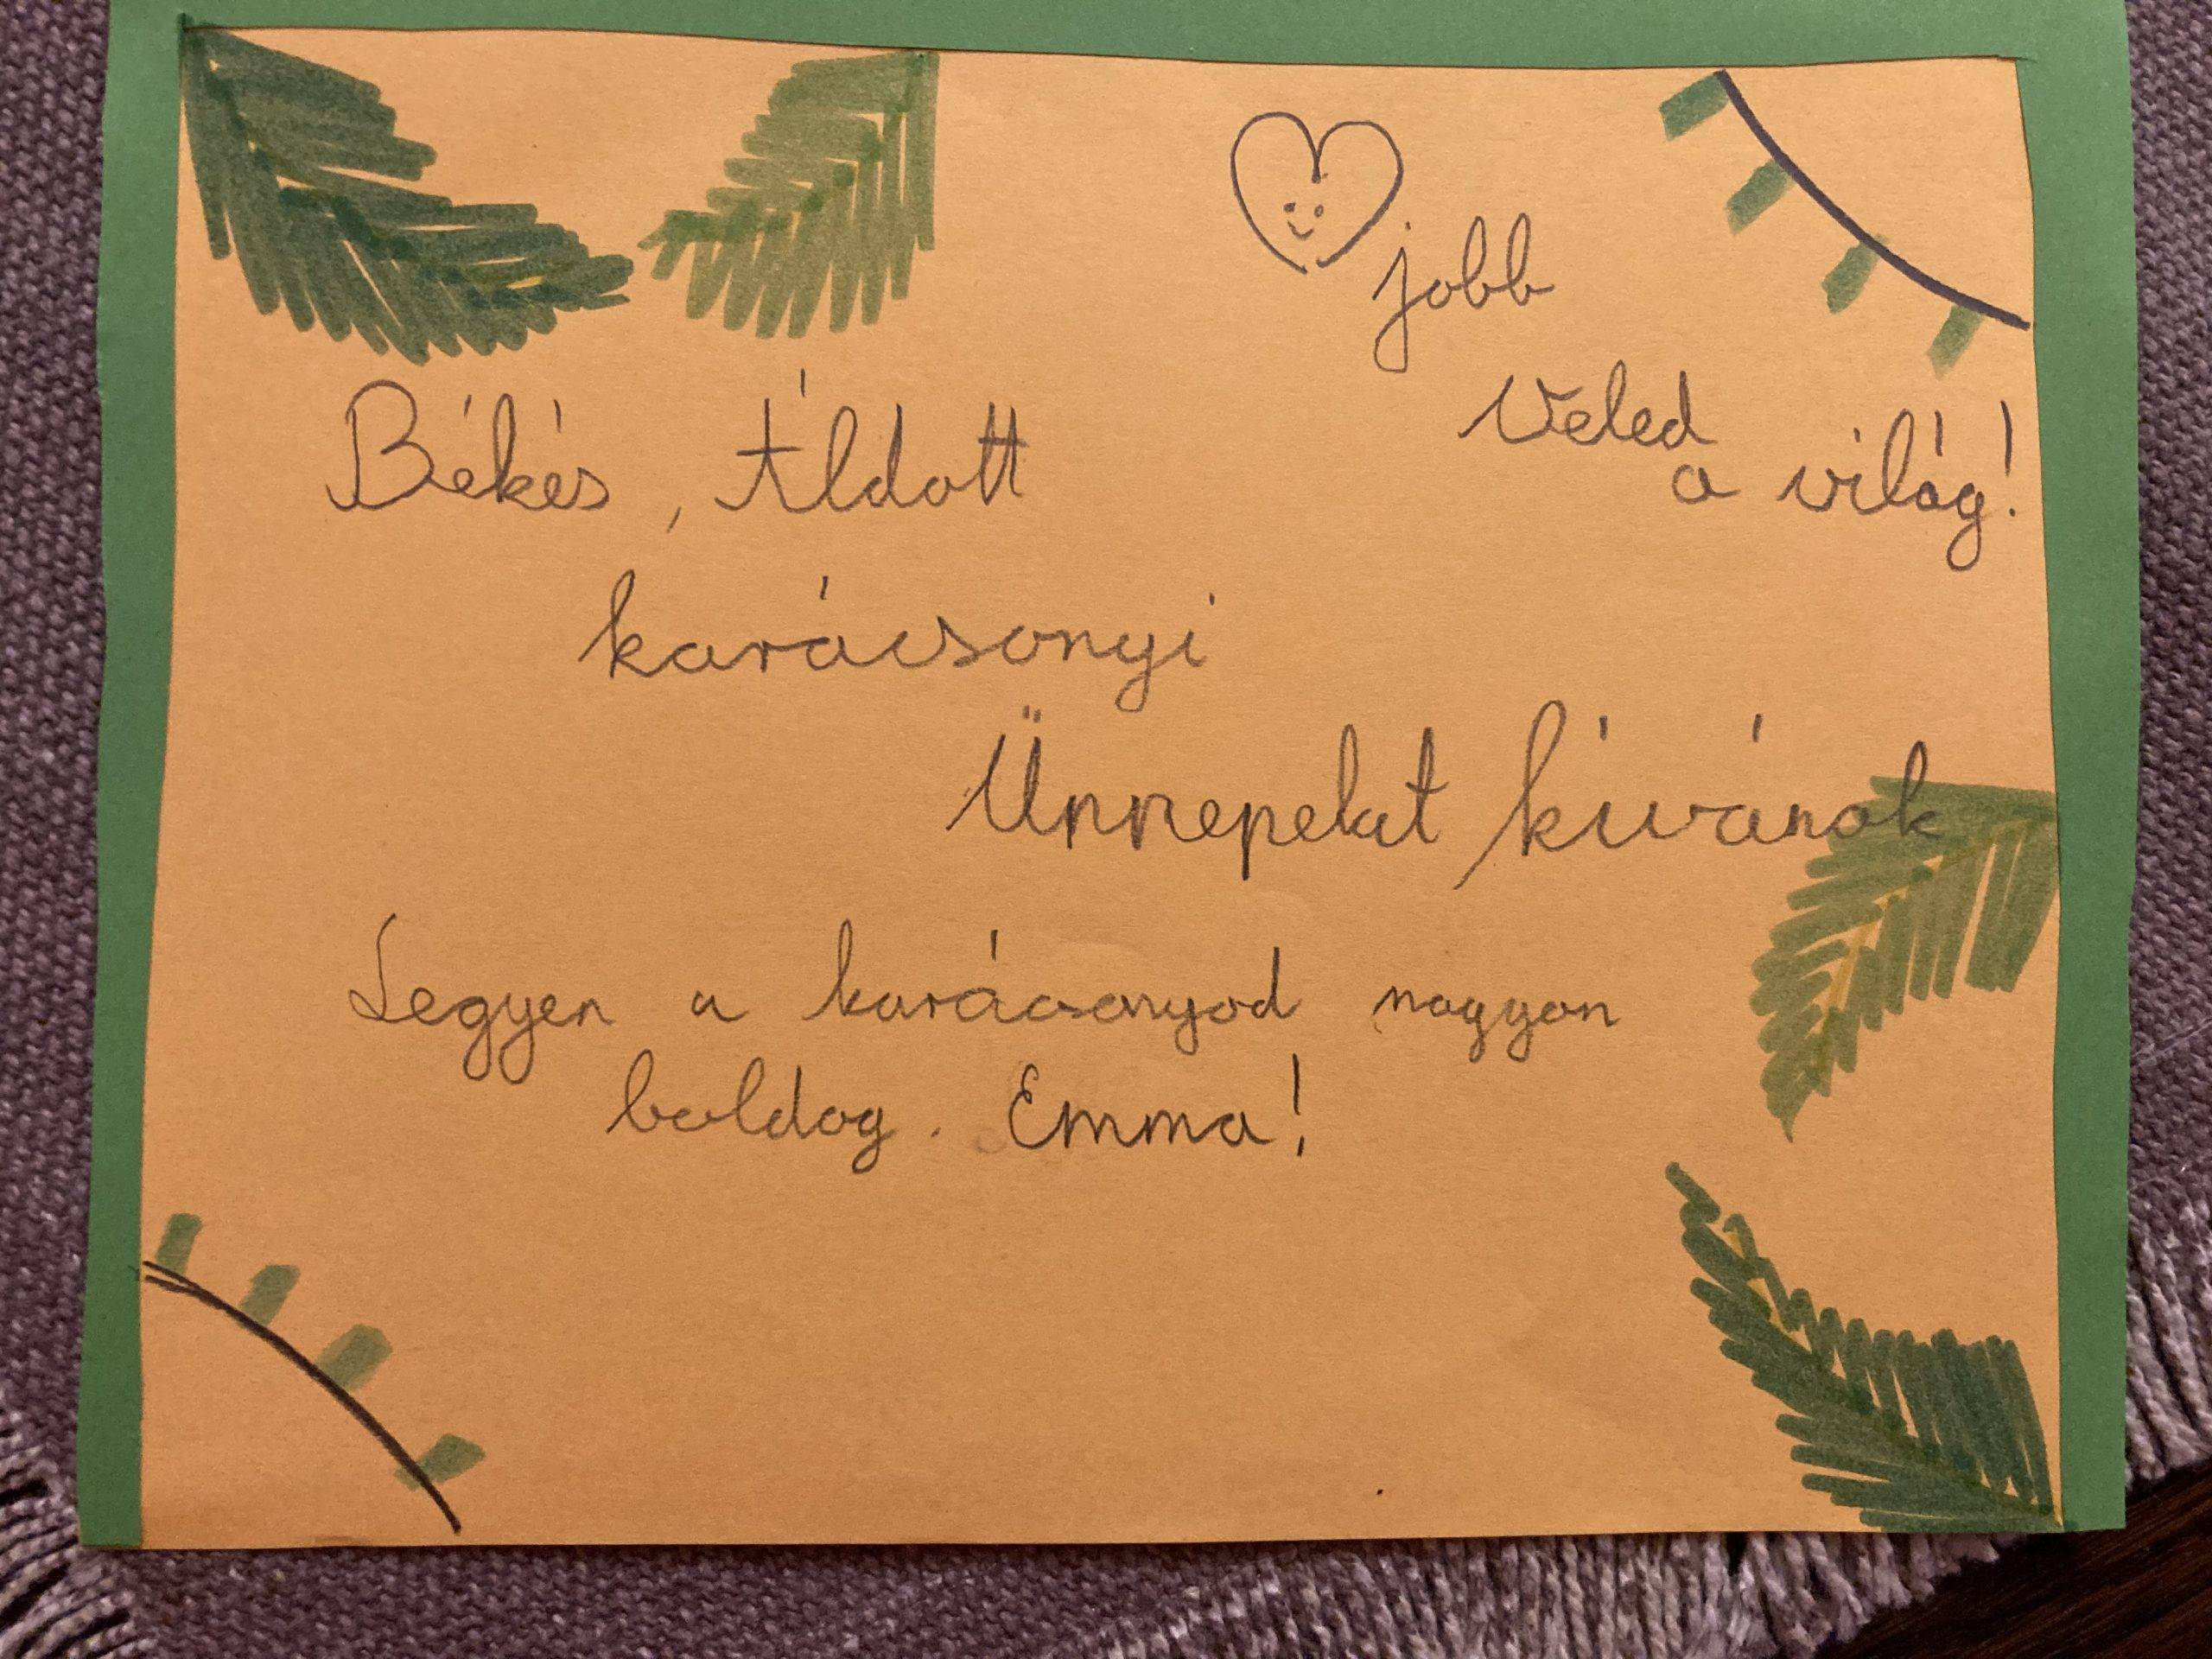 jobb
Veled
a világ!
Békés, Áldott
karácsonyi
Ünnepeket kívánok
Legyen a karácsonyod nagyon
boldog. Emma!